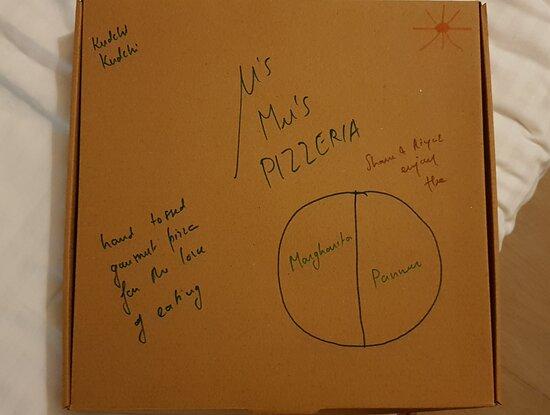 Kudchi
Kudchi
μ's
Mu's
PIZZERIA
enjoy
the
hand tossed
gourmet pizza
for the love
of eating
Margharita
Panneer